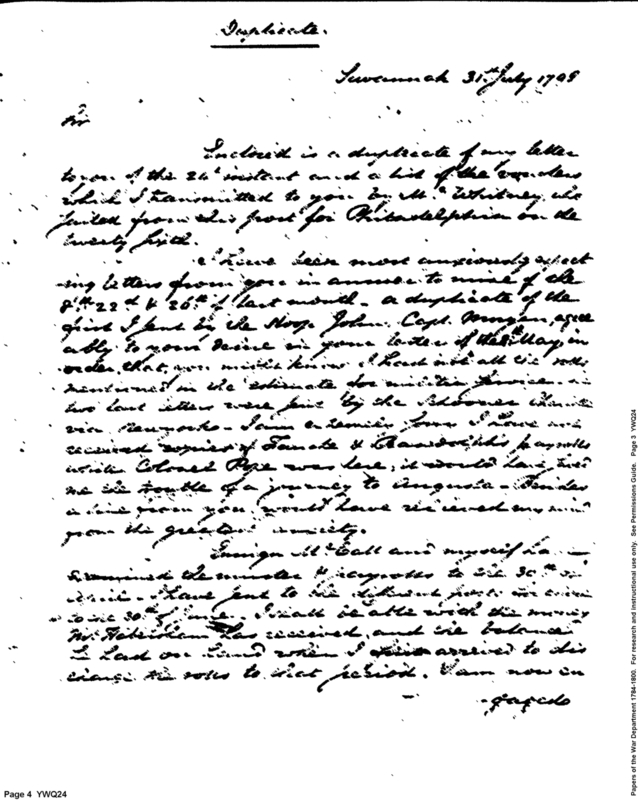 Duplicate.
Savannah 31st July 1798
Sir
Enclosed is a duplicate of my letter
to you of the 24th instant and a list of the vouchers
which I transmitted to you by Mr. Whitney, who
sailed from this port for Philadelphia on the
twenty sixth.
I have been most anxiously expect
ing letters from you in answer to mine of the
8th 22d & 26th of last month - a duplicate of the
first I sent by the Sloop John, Capt. agree
ably to your desire in your letter of the May in
order that you might know I had not all the rolls
mentioned in the estimate for militia service.
two last letters were sent by the Schooner
via Newyork - I am extremely sorry I have not
received copies of & Randolph's payrolls
while Colonel was here, it would have
me the trouble of a journey to Augusta - Besides
a line from you would have relieved my mind
from the greatest anxiety.
Ensign McCall and myself
examined the muster & payrolls to the 30th
I have sent to the different posts
to the 30th of June, I shall be able with the money
Mr. Habersham has received, and the balance
he had on hand when I arrived to dis
charge the rolls to that period. I am now en
gaged
Page 4 YWQ24
Papers of the War Department 1784-1800. For research and instructional use only. See Permissions Guide. Page 3 YWQ24